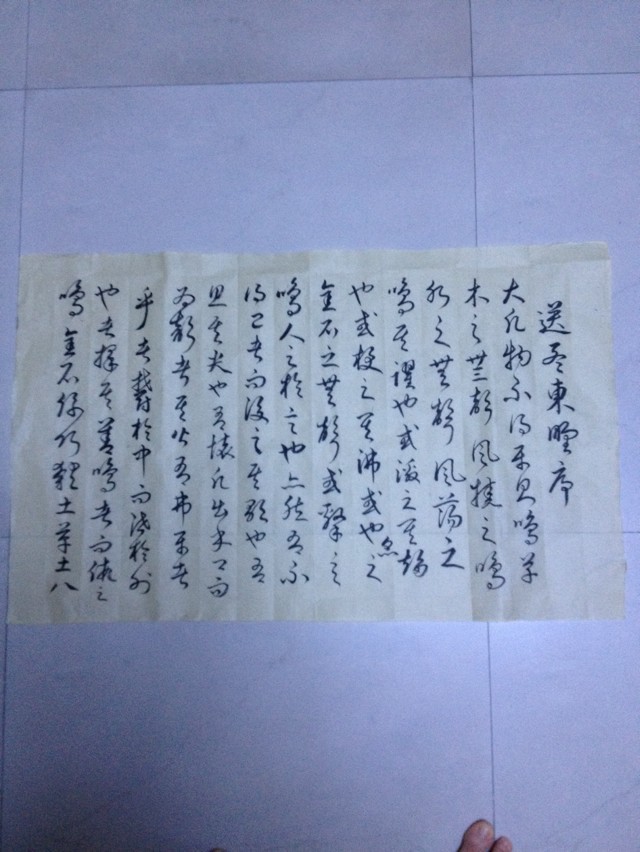 送孟東野序
大凡物不得平則鳴草
木之無聲風撓之鳴
水之無聲風蕩之
鳴其躍也或激之其趨
也或梗之其沸或也炙之
金石之無聲或擊之
鳴人之於言也亦然有不
得已者而後言其歌也有
思其哭也有懷凡出乎口而
為聲者其皆有弗平者
乎者鬱於中而泄於外
也者擇其善鳴者而假之
鳴金石絲竹匏土革土八